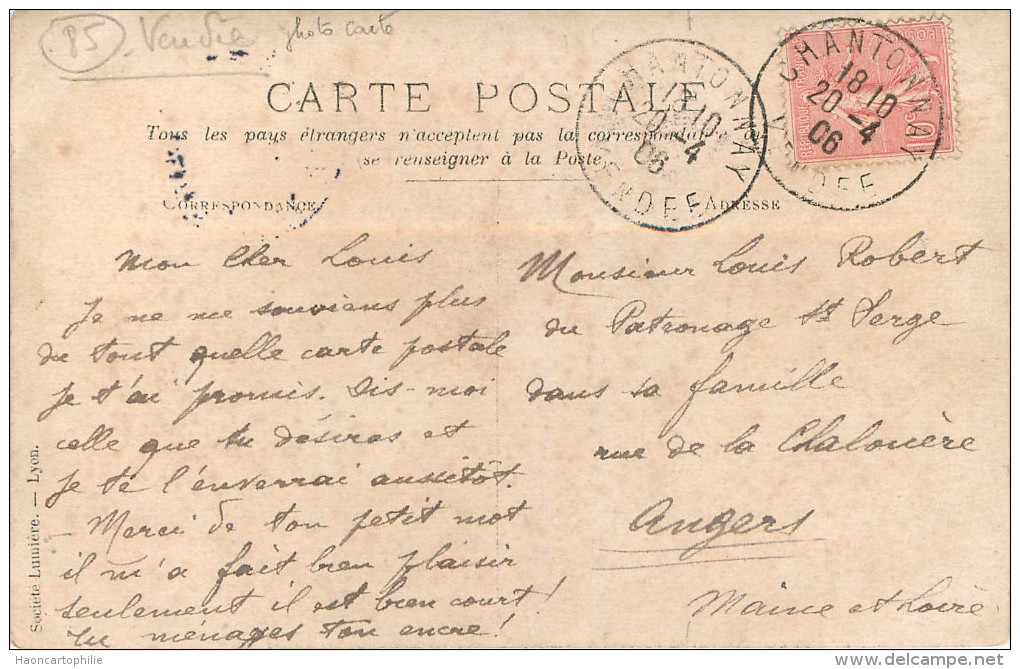 85 Vendée photo carte
CARTE POSTALE
Tous les pays étrangers n'acceptent pas la correspondance
(se renseigner à la Poste)
CHANTONNAY
18 10
20 -4
06
VENDEE
CHANTONNAY
18 10
20 -4
06
VENDEE
POSTES
REPUBLIQUE FRANÇAISE
10
CORRESPONDANCE
ADRESSE
Mon Cher Louis
Je ne me souviens plus
du tout quelle carte postale
je t'ai promis. Dis-moi
celle que tu désires et
je te l'enverrai aussitôt.
- Merci de ton petit mot
il m'a fait bien plaisir
seulement il est bien court!
Tu ménages ton encre!
Monsieur Louis Robert
du Patronage St Serge
dans sa famille
rue de la Chalouère
Angers
Maine et Loire
Société Lumière. — Lyon.
Haoncartophilie
www.delcampe.net